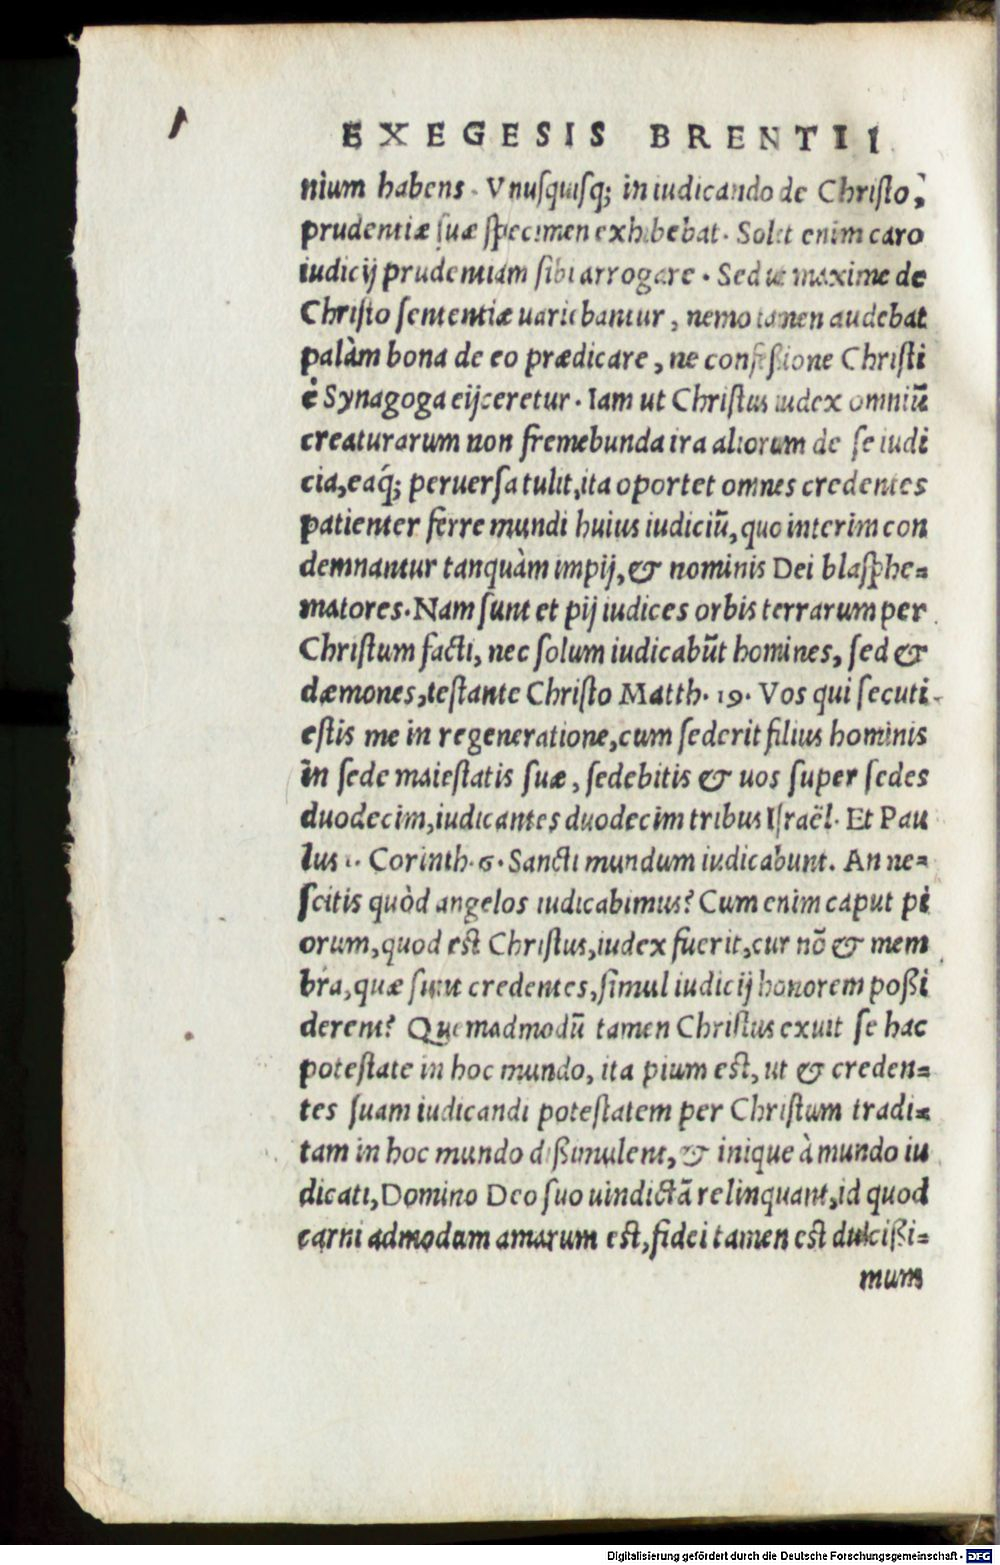 EXEGESIS BRENTII
nium habens. Vnuſquiſq; in iudicando de Chriſto,
prudentiæ ſuæ ſpecimen exhibebat. Solet enim caro
iudicij prudentiam ſibi arrogare. Sed ut maxime de
Chriſto ſententiæ uariebantur, nemo tamen audebat
palàm bona de eo prædicare, ne confeſsione Chriſti
è Synagoga eijceretur. Iam ut Chriſtus iudex omniū
creaturarum non fremebunda ira aliorum de ſe iudi
cia, eaq́; peruerſa tulit, ita oportet omnes credentes
patienter ferre mundi huius iudiciū, quo interim con
demnantur tanquàm impij, & nominis Dei blaſphe=
matores. Nam ſunt et pij iudices orbis terrarum per
Chriſtum facti, nec ſolum iudicabūt homines, ſed &
dæmones, teſtante Chriſto Matth. 19. Vos qui ſecuti
eſtis me in regeneratione, cum ſederit filius hominis
in ſede maieſtatis ſuæ, ſedebitis & uos ſuper ſedes
duodecim, iudicantes duodecim tribus Iſraël. Et Pau
lus 1. Corinth. 6. Sancti mundum iudicabunt. An ne=
ſcitis quòd angelos iudicabimus? Cum enim caput pi
orum, quod eſt Chriſtus, iudex fuerit, cur nō & mem
bra, quæ ſunt credentes, ſimul iudicij honorem poßi
derent? Quemadmodū tamen Chriſtus exuit ſe hac
poteſtate in hoc mundo, ita pium eſt, ut & creden=
tes ſuam iudicandi poteſtatem per Chriſtum tradi=
tam in hoc mundo dißimulent, & inique à mundo iu
dicati, Domino Deo ſuo uindictā relinquant, id quod
carni admodum amarum eſt, fidei tamen eſt dulcißi=
mum
Digitalisierung gefördert durch die Deutsche Forschungsgemeinschaft - DFG